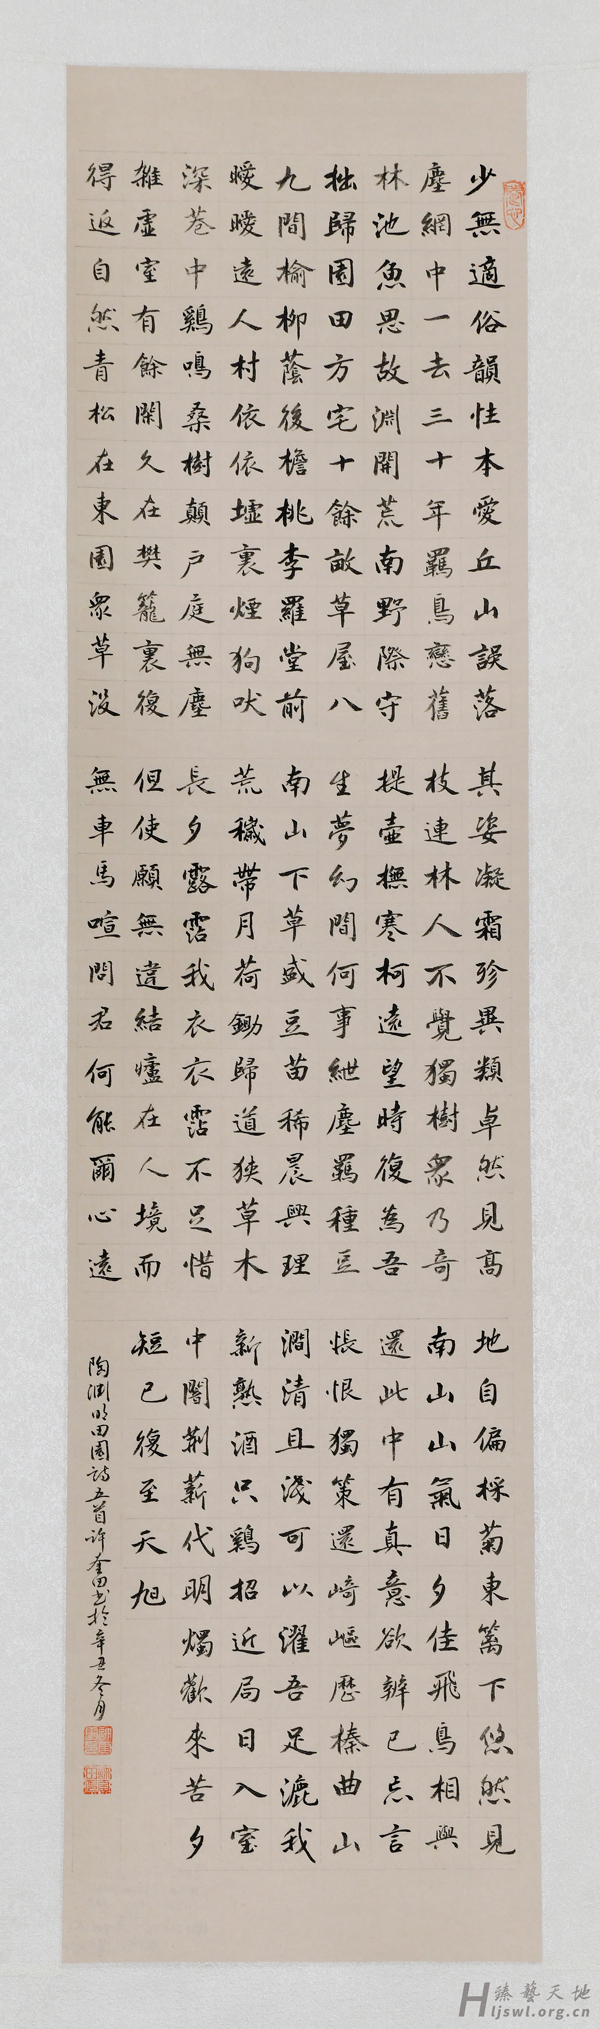 少無適俗韻性本愛丘山誤落
塵網中一去三十年羈鳥戀舊
林池魚思故淵開荒南野際守
拙歸園田方宅十餘畝草屋八
九間榆柳蔭後檐桃李羅堂前
曖曖遠人村依依墟裏煙狗吠
深巷中鷄鳴桑樹顛户庭無塵
雜虛室有餘閑久在樊籠裏復
得返自然青松在東園衆草没
其姿凝霜殄異類卓然見高
枝連林人不覺獨樹衆乃奇
提壺撫寒柯遠望時復為吾
生夢幻間何事紲塵羈種豆
南山下草盛豆苗稀晨興理
荒穢帶月荷鋤歸道狹草木
長夕露霑我衣衣霑不足惜
但使願無違結爐在人境而
無車馬喧問君何能爾心遠
地自偏採菊東籬下悠然見
南山山氣日夕佳飛鳥相與
還此中有真意欲辨已忘言
悵恨獨策還崎嶇歷榛曲山
澗清且淺可以濯吾足漉我
新熟酒只鷄招近局日入室
中闇荊薪代明燭歡來苦夕
短已復至天旭
陶渊明田園詩五首許奎田书於辛丑冬月
臻藝天地
Hljswl.org.cn